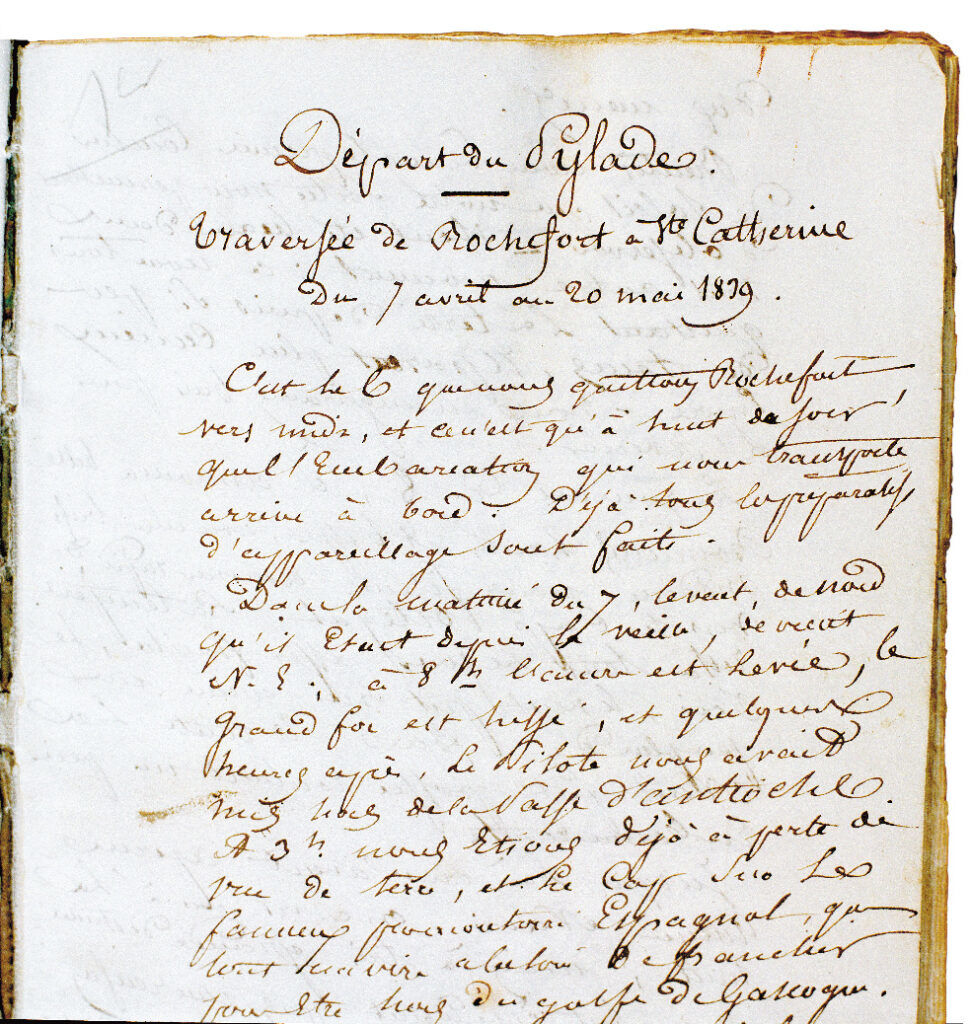 Départ du Pylade.
Traversée de Rochefort à Ste Catherine
du 7 avril au 20 mai 1839.
C'est le 6 que nous quittons Rochefort
vers midi, et ce n'est qu'à huit du soir
que l'Embarcation qui nous transporte
arrive à bord. Déjà tous les préparatifs
d'appareillage sont faits.
Dans la matinée du 7, le vent, de nord
qu'il Etait depuis la veille, devient
N. E.; à 8h l'ancre est levée, le
grand foc est hissé, et quelques
heures après, le Pilote nous avait
mis hors de la Passe d'antioche.
A 3h. nous Etions déjà à perte de
vue de terre, et le Cap sur le
fameux promontoire Espagnol, que
tout navire a besoin de franchir
pour Etre hors du golfe de Gascogne.